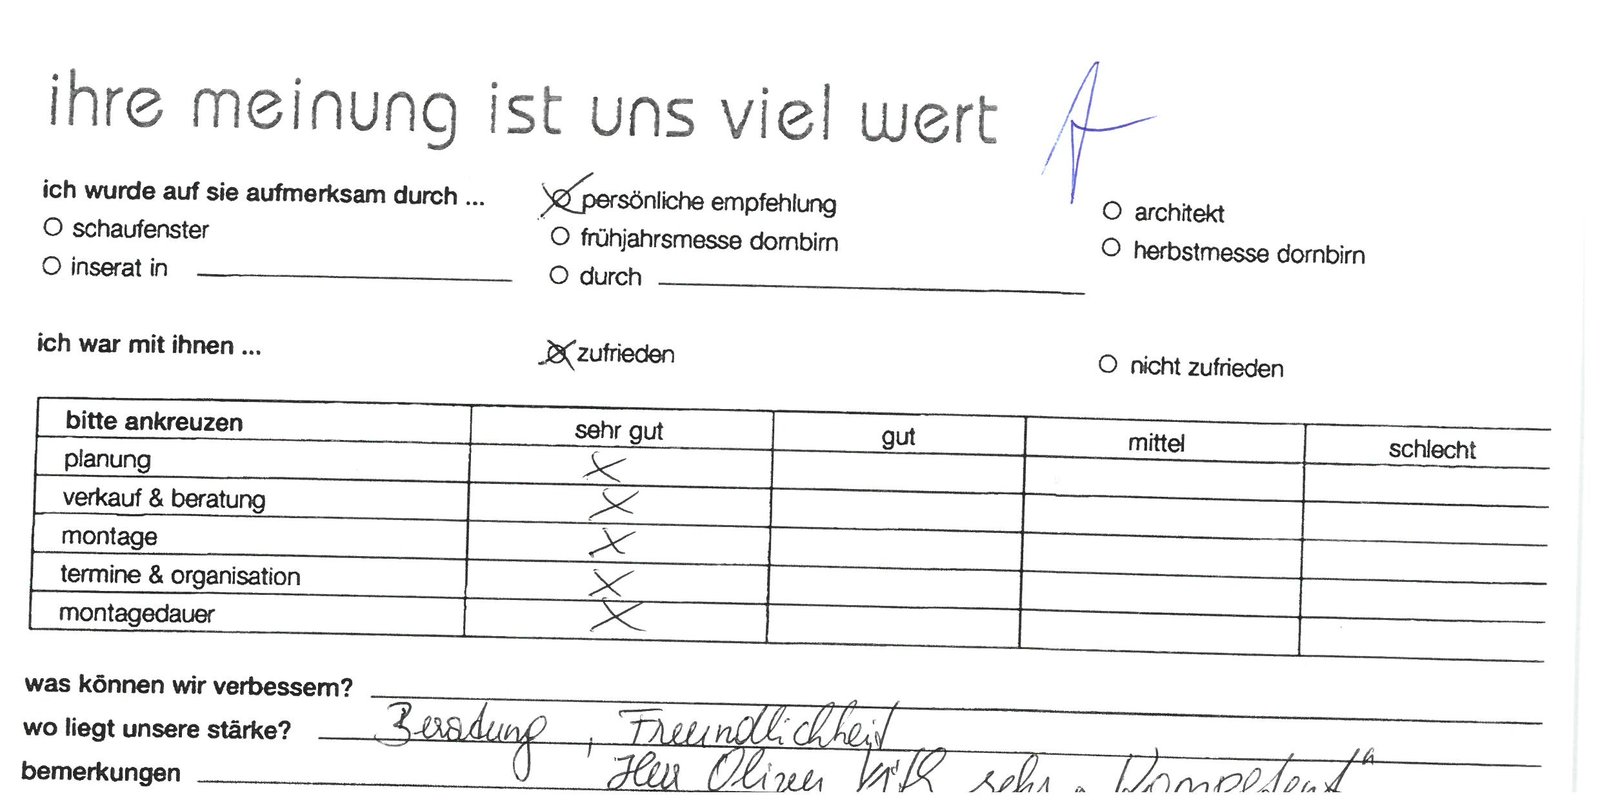 ihre meinung ist uns viel wert
ich wurde auf sie aufmerksam durch ...
persönliche empfehlung
architekt
schaufenster
frühjahrsmesse dornbirn
herbstmesse dornbirn
inserat in
durch
ich war mit ihnen ...
zufrieden
nicht zufrieden
bitte ankreuzen sehr gut gut mittel schlecht
planung X
verkauf & beratung X
montage X
termine & organisation X
montagedauer X
was können wir verbessern?
wo liegt unsere stärke? Beratung, Freundlichkeit
bemerkungen Herr Oliver sehr „Kompetent“